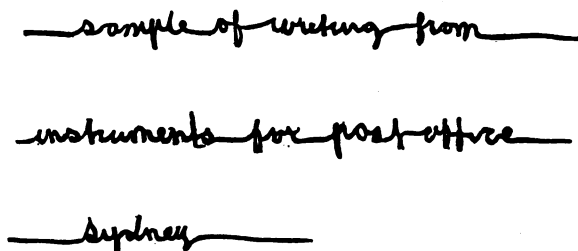 sample of writing from
instruments for post office
sydney